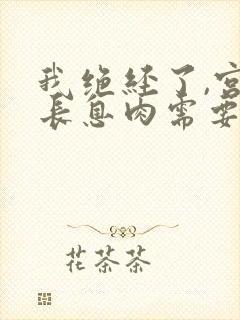 我绝经了,宫
长息肉需要
花茶茶